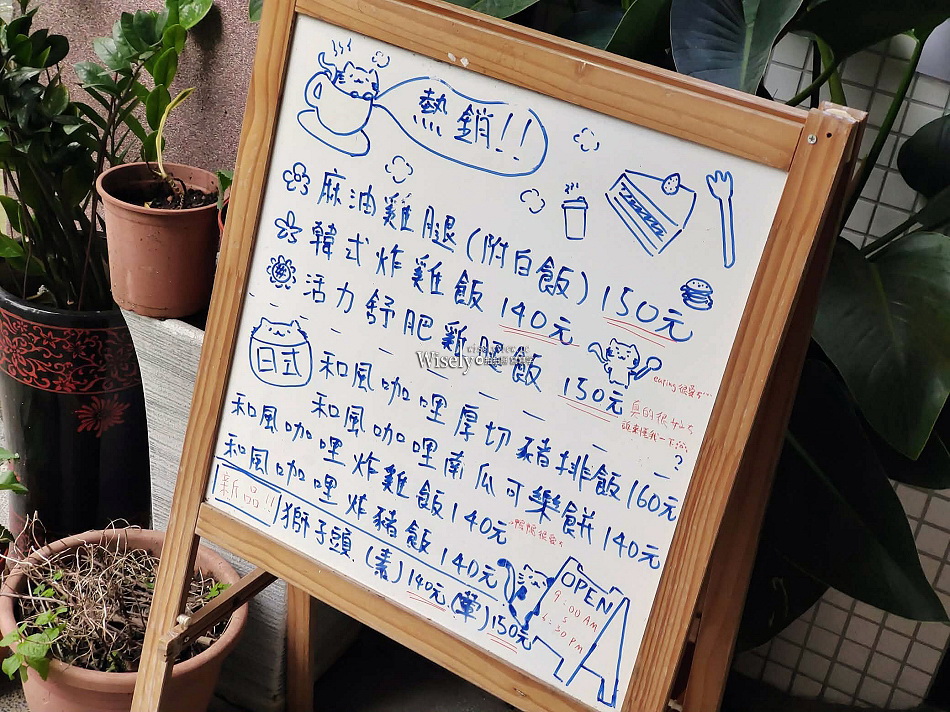 熱銷!!
麻油雞腿(附白飯) 150元
韓式炸雞飯 140元
活力舒肥雞腿飯 150元
Wisely
eating很愛
真的很好吃
日式
和風咖哩厚切豬排飯 160元
和風咖哩南瓜可樂餅 140元
和風咖哩炸雞飯 140元
和風咖哩炸豬飯 140元
新品!!
獅子頭(素) 140元 (葷) 150元
OPEN
9:00 AM
6:30 PM